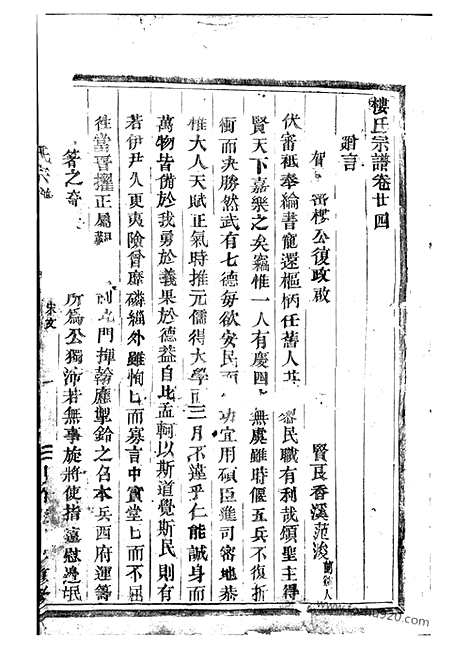 樓氏宗譜卷廿四
贈言
賀 樓公復政啟
賢良香溪范浚蘭谿人
伏審祗奉綸書寵還樞柄任舊人共 民職有利哉頌聖主得
賢天下嘉樂之矣竊惟一人有慶四 無虞雖時偃五兵不復折
衝而決勝然武有七德每欲安民而 功宜用碩臣難司審地恭
惟大人天賦正氣時推元儒得大學 三月不違乎仁能誠身而
萬物皆備於我勇於義果於德益自比孟軻以斯道覺斯民則有
若伊尹久更夷險曾靡磷緇外雖恂恂而寡言中實堂堂而不屈
往當晉擢正屬艱 北門揮翰應掣鈴之召本兵西府運籌
箸之奇 所為公獨沛若無事旋將使指遠慰邊氓
宋文